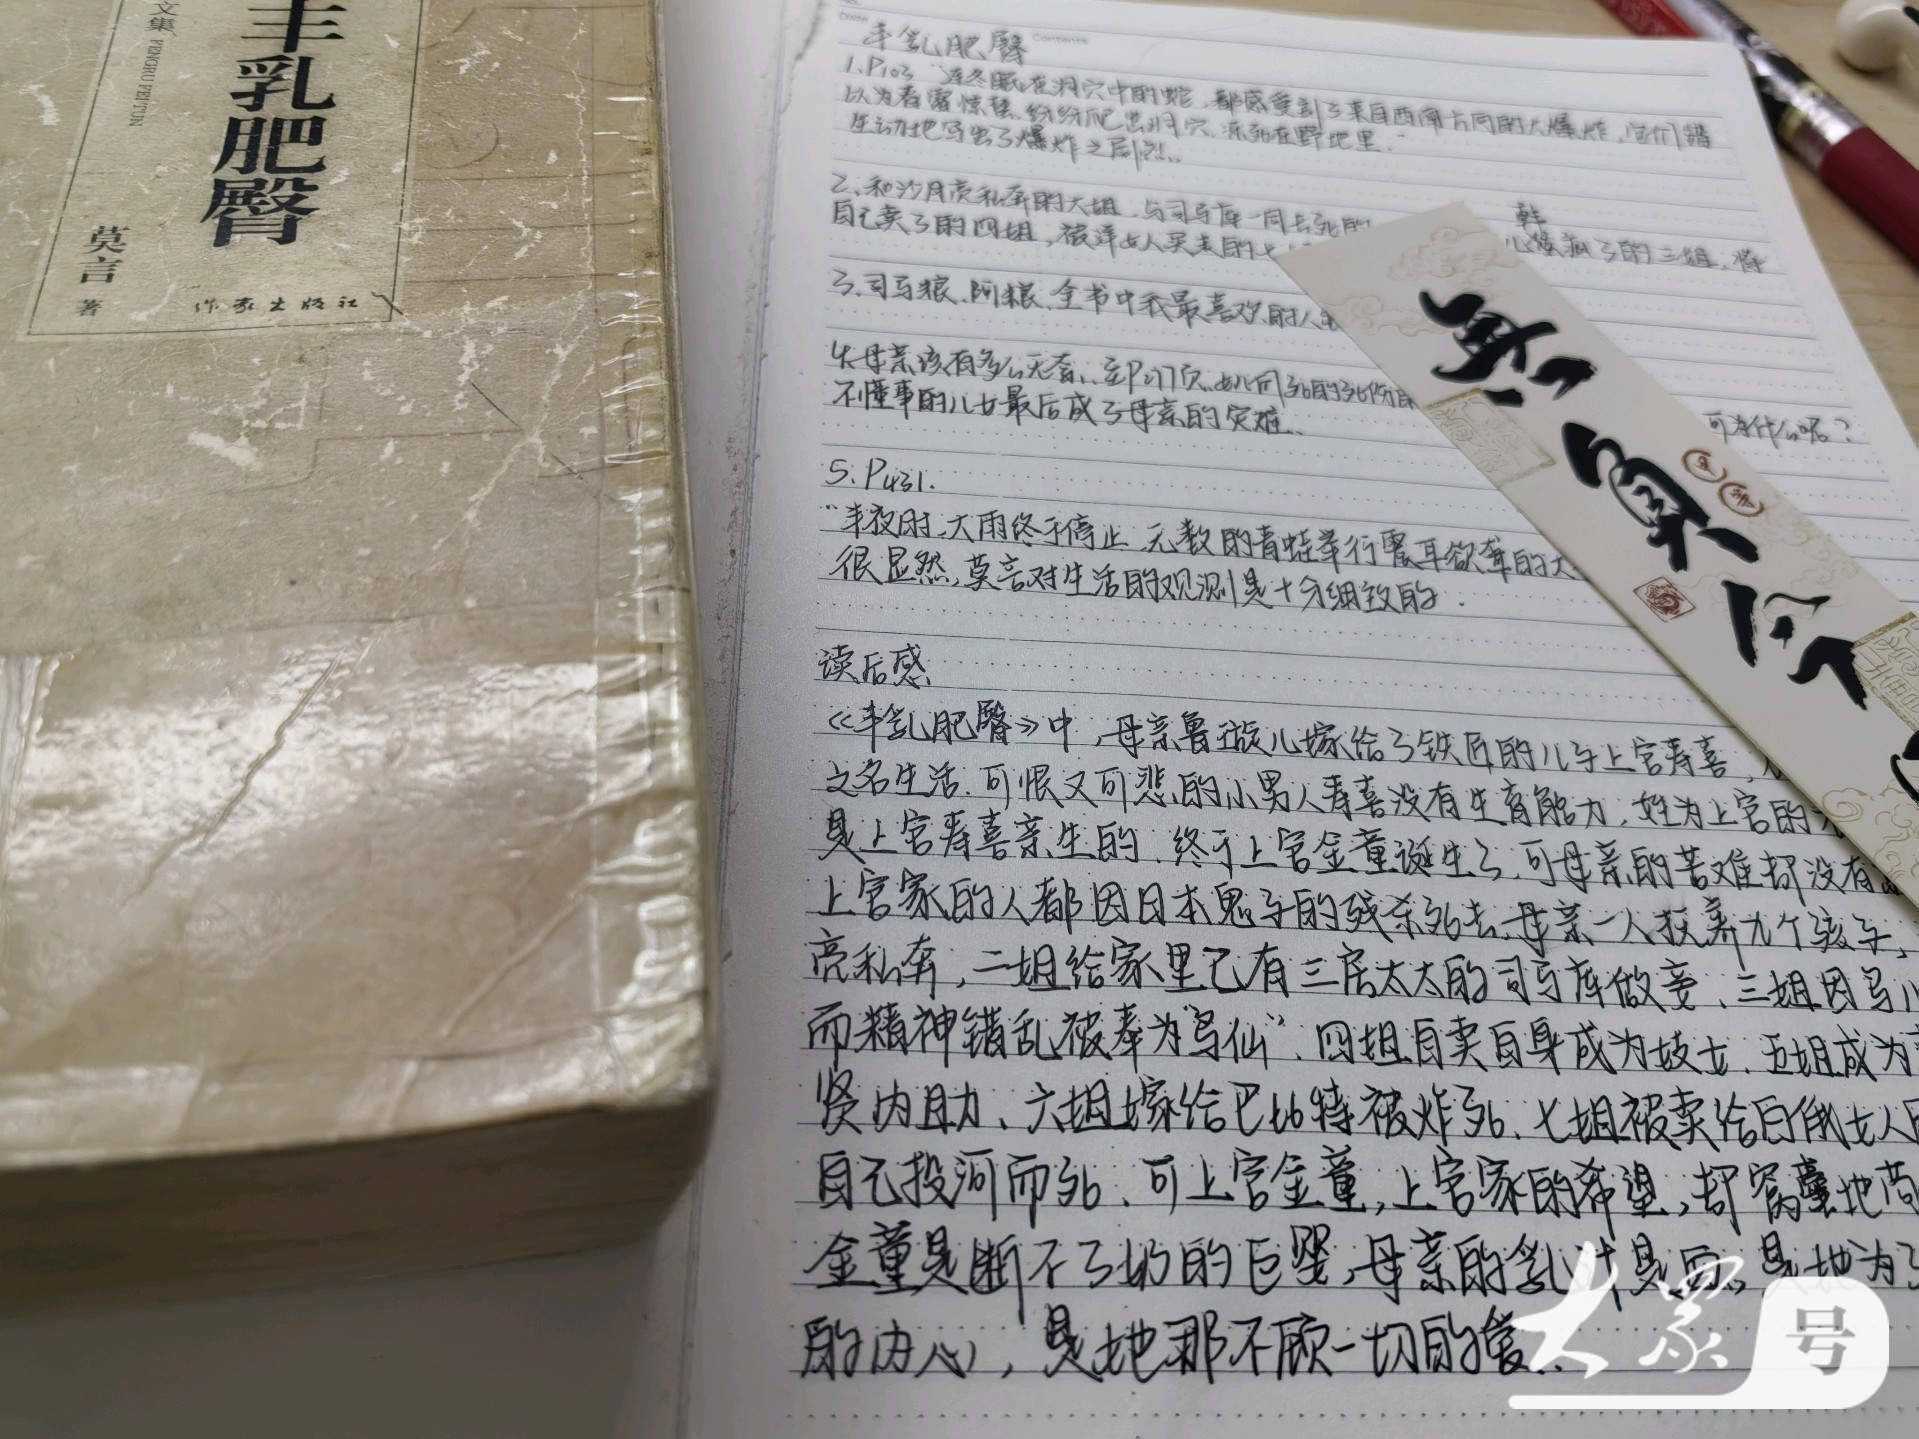 文集 FENGRU FEITUN
丰乳肥臀
莫言
著
作家出版社
Date
Contents
丰乳肥臀
1.P103 "连冬眠在洞穴中的蛇,都感受到了来自西南方向的大爆炸,它们错
以为春雷惊蛰,纷纷爬出洞穴,冻死在野地里."
生动地写出了爆炸之剧烈..
2.和沙月亮私奔的大姐,与司马库一同去死的
韩
自己卖了的四姐,被洋女人买走的七
疯了的三姐,将
3.司马粮,阿粮,全书中我最喜欢的人
4.母亲该有多么无奈..至P277页.
可为什么呢?
不懂事的儿女最后成了母亲的灾难.
5.P431.
"半夜时,大雨终于停止,无数的青蛙举行震耳欲聋的大
很显然,莫言对生活的观测是十分细致的.
读后感
《丰乳肥臀》中,母亲鲁璇儿嫁给了铁匠的儿子上官寿喜,
之名生活.可恨又可悲的小男人寿喜没有生育能力,姓为上官的
是上官寿喜亲生的.终于上官金童诞生了,可母亲的苦难却没有
上官家的人都因日本鬼子的残杀死去,母亲一人抚养九个孩子,
亮私奔,二姐给家里已有三房太太的司马库做妾,三姐因鸟儿
而精神错乱被奉为"鸟仙".四姐自卖自身成为妓女.五姐成为
贤内助、六姐嫁给巴比特被炸死、七姐被卖给白俄女人
自己投河而死.可上官金童,上官家的希望,却窝囊地苟
金童是断不了奶的巨婴,母亲的乳汁是血,是她为
的内心,是她那不顾一切的爱..
大众号